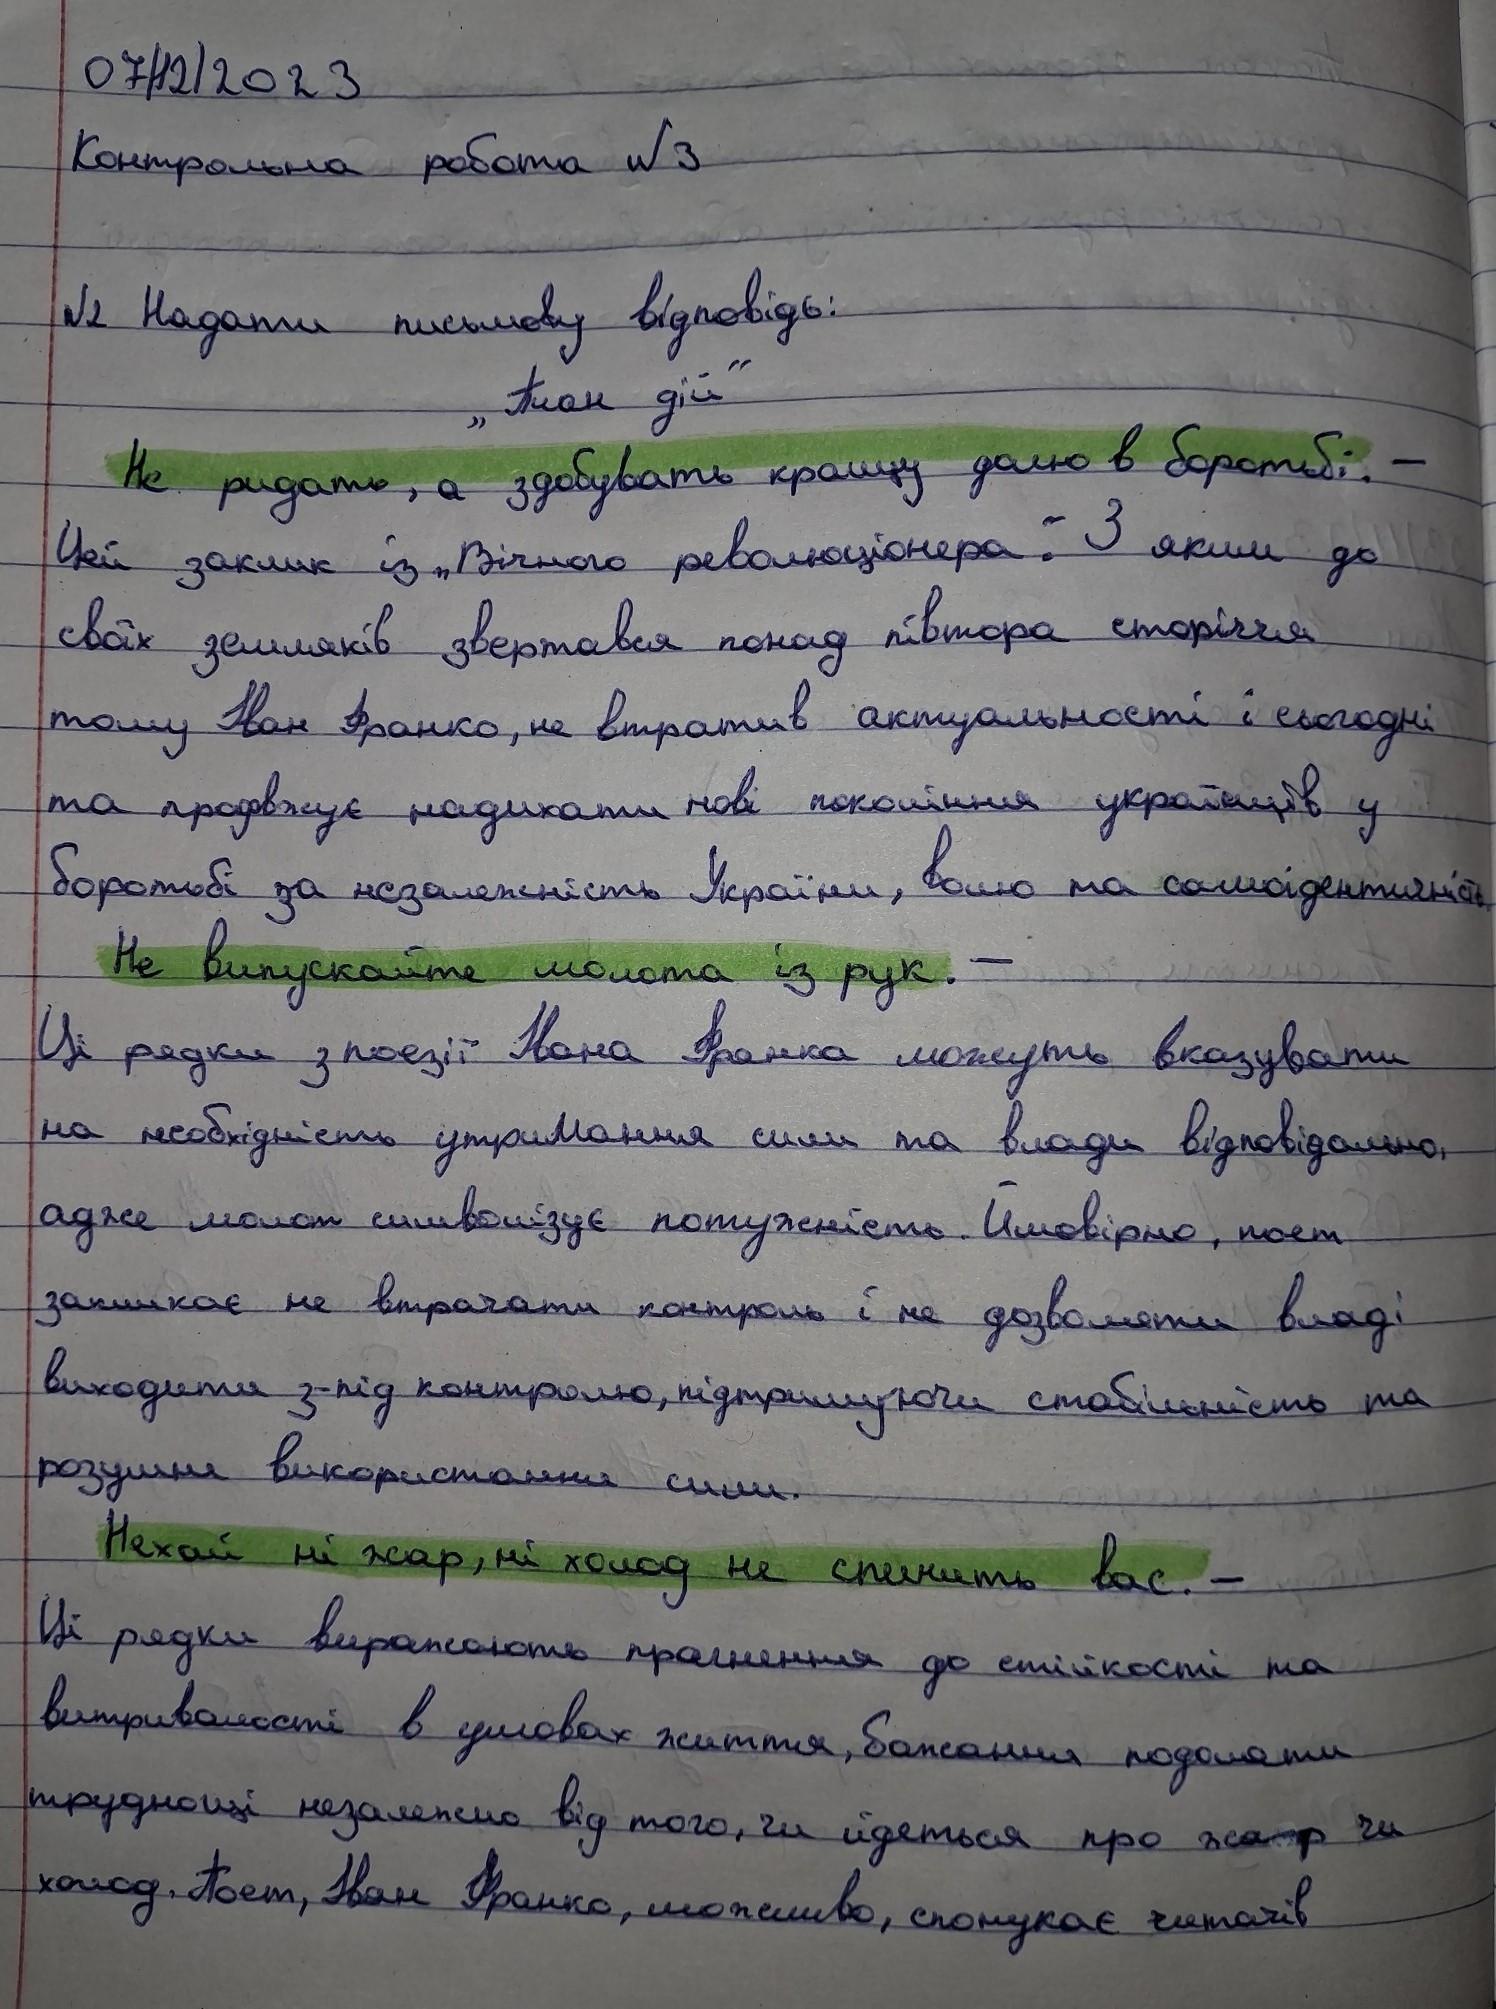 07/12/2023
Контрольна робота №3
№2 Надати письмову відповідь:
„План дій“
Не ридать, а здобувать кращу долю в боротьбі. –
Цей заклик із „Вічного революціонера“. З яким до
своїх земляків звертався понад півтора сторіччя
тому Іван Франко, не втратив актуальності і сьогодні
та продвжує надихати нові покоління українців у
боротьбі за незалежність України, волю та самоідентичність.
Не випускайте молота із рук. –
Ці рядки з поезії Івана Франка можуть вказувати
на необхідність утримання сили та влади відповідально,
адже молот символізує потужність. Ймовірно, поет
закликає не втрачати контроль і не дозволяти владі
виходити з-під контролю, підтримуючи стабільність та
розумне використання сили.
Нехай ні жар, ні холод не спинить вас. –
Ці рядки виражають прагнення до стійкості та
витривалості в умовах життя, бажання подолати
труднощі незалежно від того, чи йдеться про жар чи
холод. Поет, Іван Франко, можливо, спонукає читачів